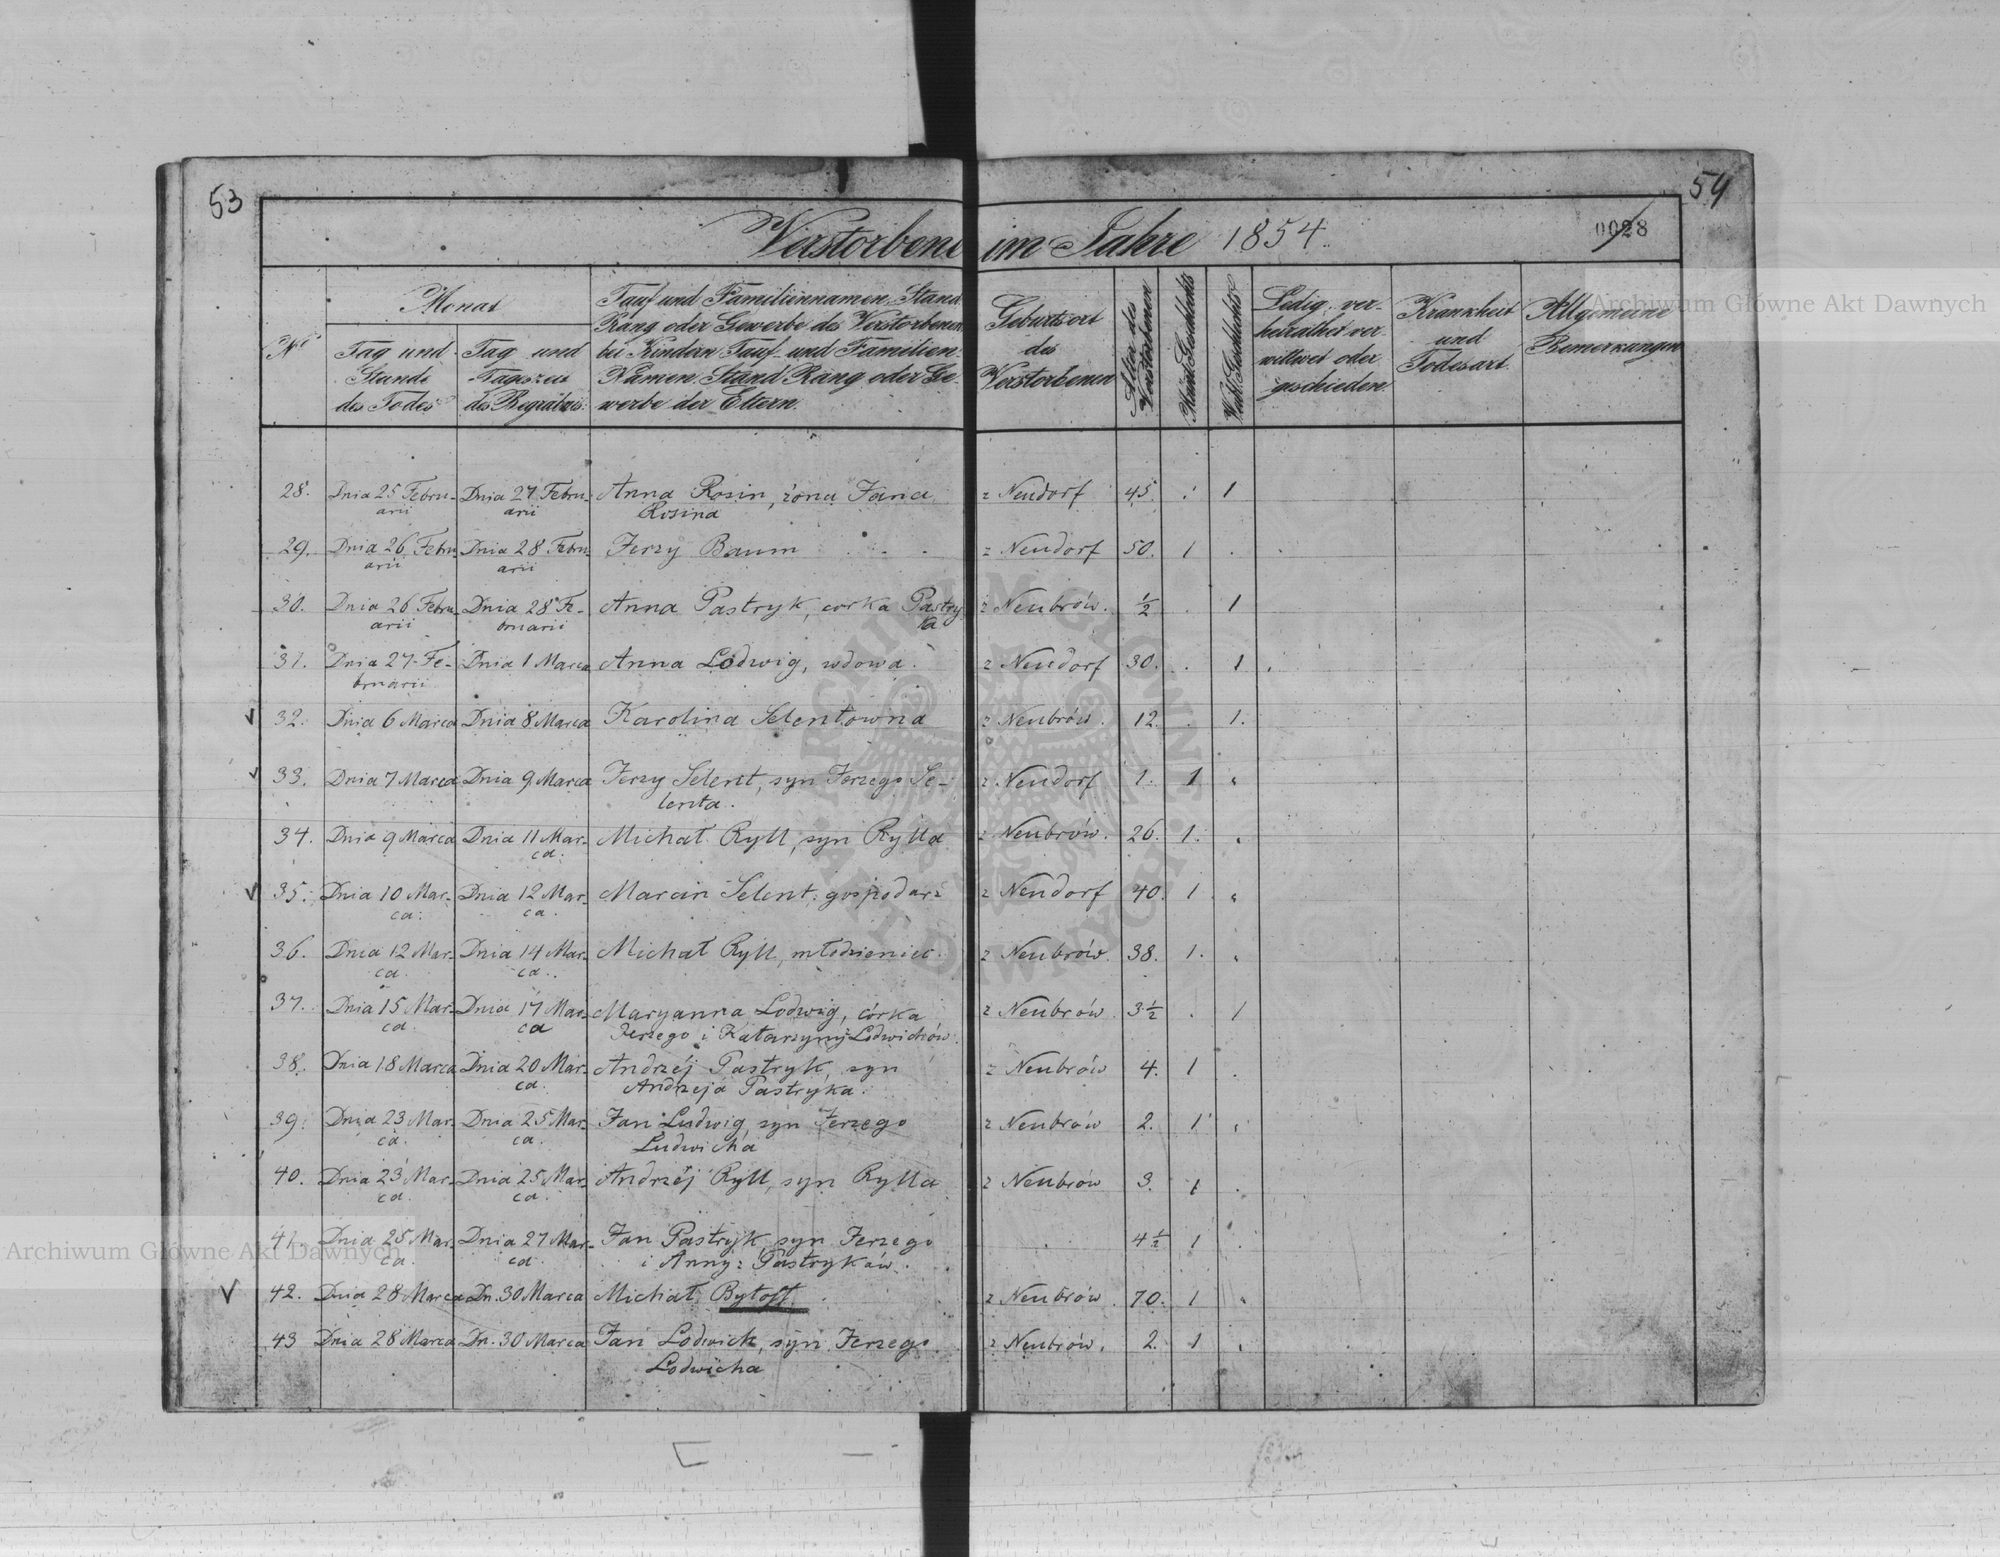 53
54
Verstorbene im Jahre 1854.
0028
Archiwum Główne Akt Dawnych
No
Monat
Tag und
Stunde
des Todes
Tag und
Tageszeit
des Begräbnis:
Tauf und Familiennamen, Stand
Rang oder Gewerbe des Verstorbenen
bei Kindern Tauf- und Familien-
Namen Stand Rang oder Ge-
werbe der Eltern.
Geburtsort
des
Verstorbenen
Alter des
Verstorbenen
Männl. Geschlechts
Weibl. Geschlechts
Ledig, ver-
heirathet ver-
wittwet oder
geschieden
Krankheit
und
Todesart.
Allgemeine
Bemerkungen
28. Dnia 25 Febru- Dnia 27 Febru- Anna Rosin, żona Jana z Neudorf 45. 1
arii arii Rosina
29. Dnia 26 Febru- Dnia 28 Febru- Jerzy Baum z Neudorf 50. 1
arii arii
30. Dnia 26 Febru- Dnia 28 Fe- Anna Pastryk, corka Pastry z Neubrów. ½ 1
arii bruarii ka
31. Dnia 27 Fe- Dnia 1 Marca Anna Lodwig, wdowa. z Neudorf 30. 1
bruarii
32. Dnia 6 Marca Dnia 8 Marca Karolina Selentowna z Neubrów. 12. 1.
33. Dnia 7 Marca Dnia 9 Marca Jerzy Selent, syn Jerzego Se- z Neudorf 1. 1
lenta.
34. Dnia 9 Marca Dnia 11 Mar- Michał Ryll, syn Rylla z Neubrów. 26. 1.
ca.
35. Dnia 10 Mar- Dnia 12 Mar- Marcin Selent, gospodarz z Neudorf 40. 1
ca. ca.
36. Dnia 12 Mar- Dnia 14 Mar- Michał Ryll, młodzieniec. z Neubrów. 38. 1.
ca. ca.
37. Dnia 15 Mar- Dnia 17 Mar- Maryanna Lodwig, córka z Neubrów 3½ 1
ca. ca Jerzego i Katarzyny Lodwichów.
38. Dnia 18 Marca Dnia 20 Mar- Andrzéj Pastryk, syn z Neubrów 4. 1
ca. Andrzeja Pastryka.
39. Dnia 23 Mar- Dnia 25 Mar- Jan Ludwig, syn Jerzego z Neubrów 2. 1
ca. ca. Ludwicha
40. Dnia 23 Mar- Dnia 25 Mar- Andrzéj Ryll, syn Rylla z Neubrów 3. 1
ca. ca.
41. Dnia 25 Mar- Dnia 27 Mar- Jan Pastryk, syn Jerzego 4½ 1
ca. ca. i Anny: Pastryków.
42. Dnia 28 Marca Dn. 30 Marca Michał Bytoft z Neubrów. 70. 1
43 Dnia 28 Marca Dn. 30 Marca Jan Lodwick, syn Jerzego. z Neubrów. 2. 1
Lodwicha
Archiwum Główne Akt Dawnych
ARCHIWUM GŁÓWNE AKT DAWNYCH